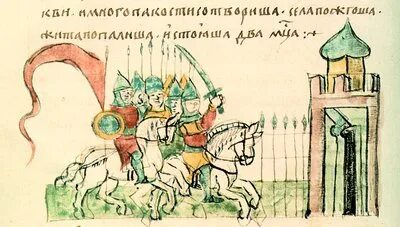 кви . имногопакостисотвориша . селапожгоша .
житапопалиша . истоꙗша два мц҃а :⁓